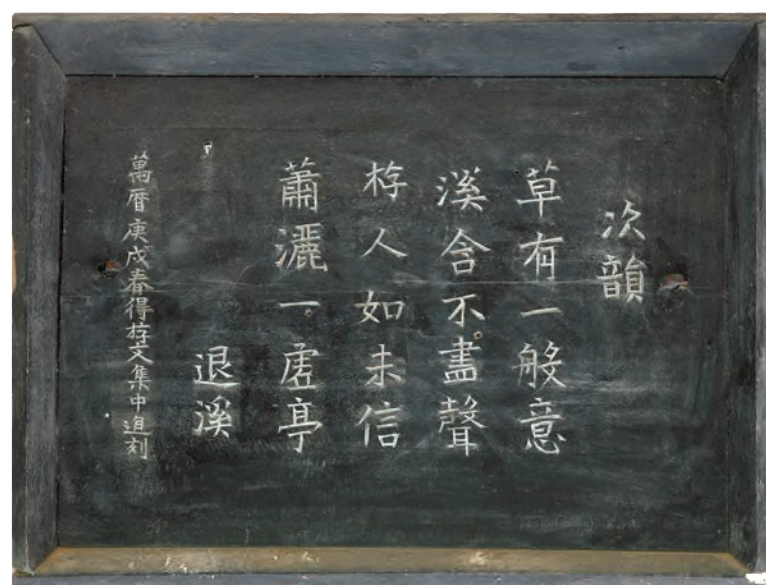 次韻
草有一般意
溪含不盡聲
㳺人如未信
蕭灑一虛亭
退溪
萬曆庚戌春得於文集中追刻